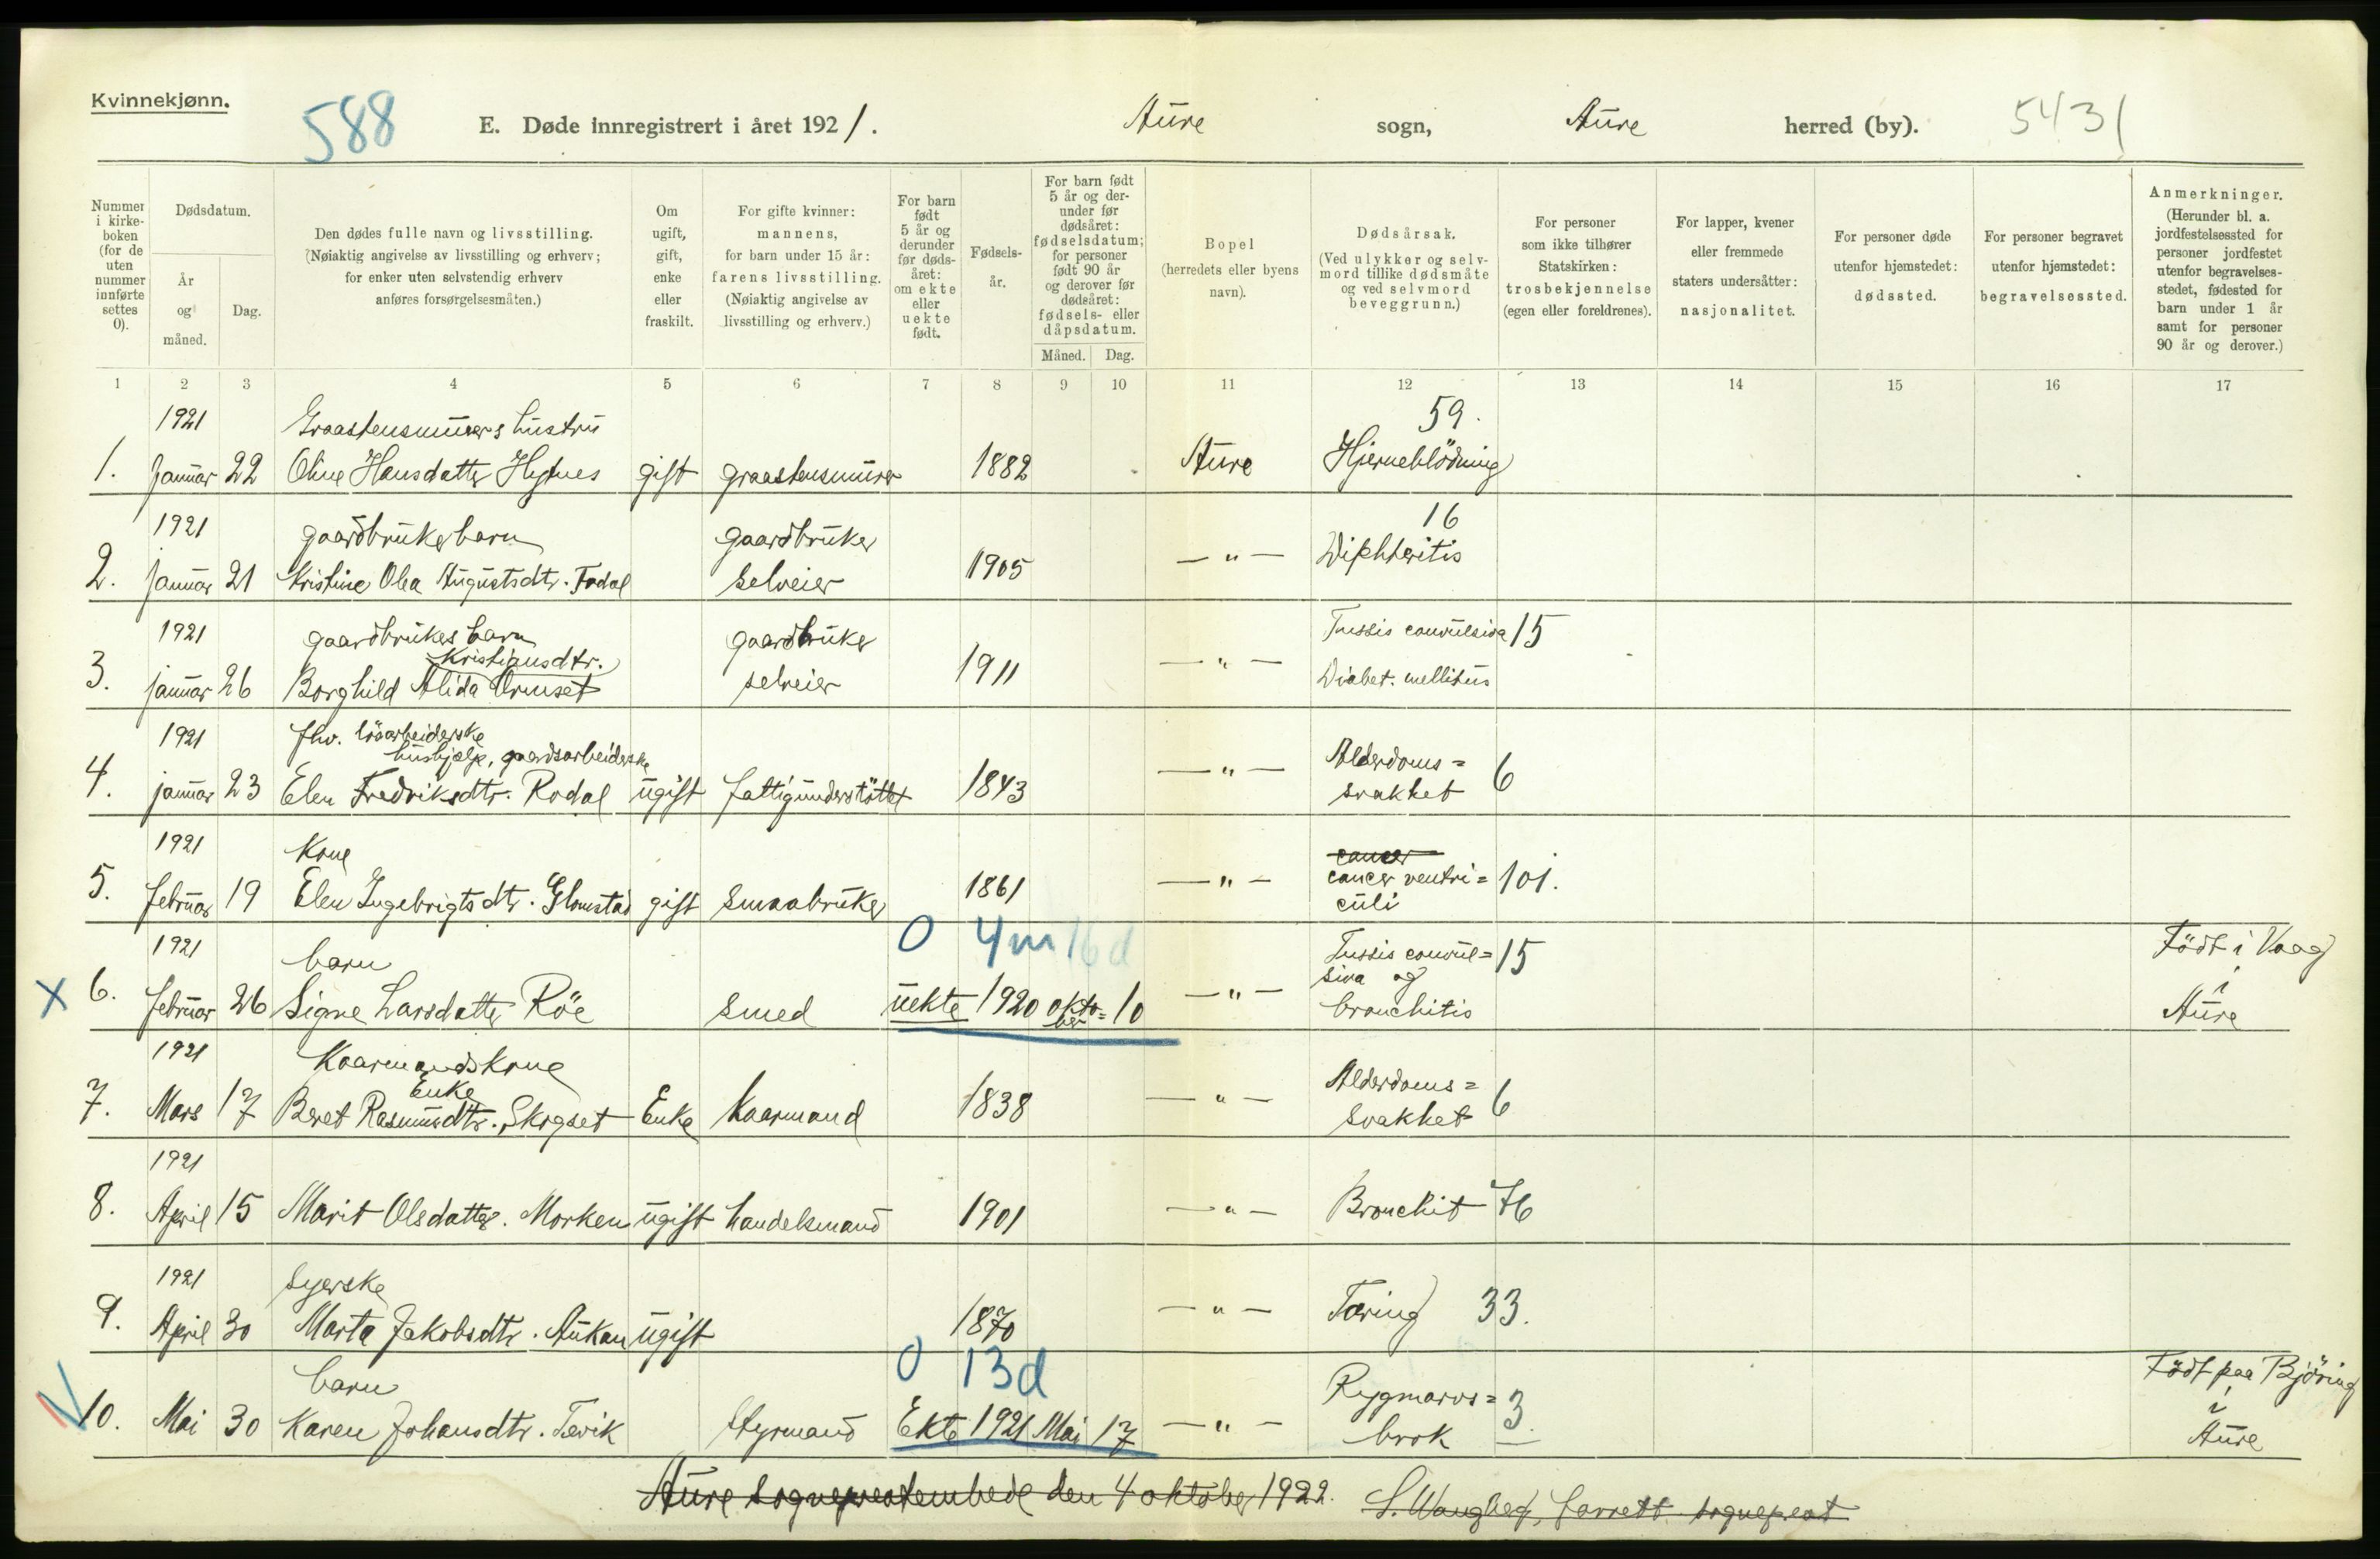 Kvinnekjønn.
588
E. Døde innregistrert i året 1921. Aure sogn, Aure herred (by). 5431
Nummer i kirkeboken (for de uten nummer innførte settes 0).
Dødsdatum.
År og måned.
Dag.
Den dødes fulle navn og livsstilling.
(Nøiaktig angivelse av livsstilling og erhverv;
for enker uten selvstendig erhverv
anføres forsørgelsesmåten.)
Om ugift, gift, enke eller fraskilt.
For gifte kvinner:
mannens,
for barn under 15 år:
farens livsstilling.
(Nøiaktig angivelse av
livsstilling og erhverv.)
For barn født 5 år og derunder før dødsåret: om ekte eller uekte født.
Fødselsår.
For barn født 5 år og derunder før dødsåret: fødselsdatum; for personer født 90 år og derover før dødsåret: fødsels- eller dåpsdatum.
Måned. Dag.
Bopel
(herredets eller byens
navn).
Dødsårsak.
(Ved ulykker og selvmord tillike dødsmåte
og ved selvmord
beveggrunn.)
For personer
som ikke tilhører
Statskirken:
trosbekjennelse
(egen eller foreldrenes).
For lapper, kvener
eller fremmede
staters undersåtter:
nasjonalitet.
For personer døde
utenfor hjemstedet:
dødssted.
For personer begravet
utenfor hjemstedet:
begravelsessted.
Anmerkninger.
(Herunder bl. a.
jordfestelsessted for
personer jordfestet
utenfor begravelsesstedet, fødested for
barn under 1 år
samt for personer
90 år og derover.)
1 2 3 4 5 6 7 8 9 10 11 12 13 14 15 16 17
1921 Graastensmurers hustru 59.
1. Januar 22 Oline Hansdatter gift graastensmurer 1882 Aure Hjerneblödning
1921 gaardbrukerbarn gaardbruker 16
2. Januar 21 Kristine Olea Augustsdtr. Todal selveier 1905 — " — Diphteritis
1921 gaardbrukers barn gaardbruker Tussis convulsiva 15
Kristiansdtr.
3. januar 26 Borghild Alida Ormset selveier 1911 — " — Diabet. mellitus
1921 fhv. lösarbeiderske
hushjælp, gaardsarbeiderske Alderdoms=
4. januar 23 Elen Fredriksdtr. Rodal ugift fattigunderstöttet 1843 — " — svakhet 6
1921 Kone cancer
5. februar 19 Elen Ingebrigtsdtr. Glomstad gift smaabruker 1861 — " — cancer ventri= 101.
culi
0 4 m 16 d
1921 barn Tussis convul= 15 Födt i Vaag
siva og i
x 6. februar 26 Signe Larsdatter Röe smed uekte 1920 okto=ber 10 — " — bronchitis Aure
1921 Kaarmandskone Alderdoms=
Enke
7. Mars 17 Beret Rasmusdtr. Skogset Enke kaarmand 1838 — " — svakhet 6
1921
8. April 15 Marit Olsdatter. Morken ugift handelsmand 1901 — " — Bronchit 76
1921 Syerske
9. April 30 Marta Jakobsdtr. Aukan ugift 1870 — " — Tæring 33.
0 13 d
barn Rygmarvs= 3. Födt paa Björing
i
10. Mai 30 Karen Johansdtr. Tevik Styrmand Ekte 1921 Mai 17 — " — brok Aure
Aure sogneprestembede den 4 oktober 1922. sogneprest